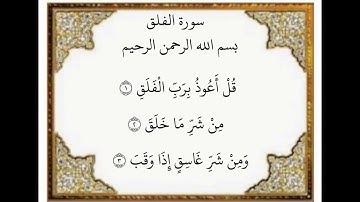 سورة الفلق
بسم الله الرحمن الرحيم
قُلْ أَعُوذُ بِرَبِّ الْفَلَقِ ١
مِنْ شَرِّ مَا خَلَقَ ٢
وَمِنْ شَرِّ غَاسِقٍ إِذَا وَقَبَ ٣